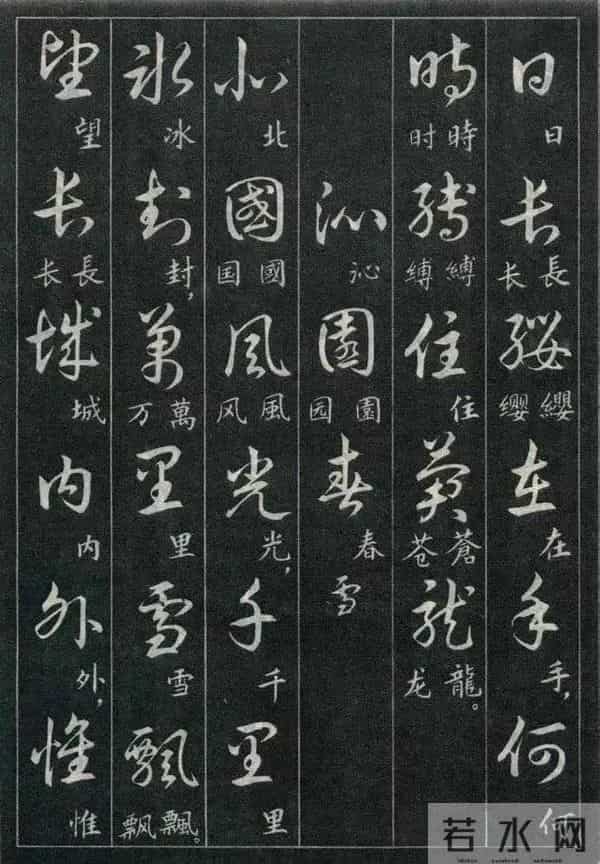 日长缨在手何
日
長长
纓缨
在
手，
何
時缚住苍龙
時时
縛缚
住
蒼苍
龍龙。
沁園春
沁
園园
春
雪
北國風光千里
北
國国
風风
光，
千
里
冰封萬里雪飄
冰
封，
萬万
里
雪
飄飘。
望长城内外惟
望
長长
城
内
外，
惟
若水网